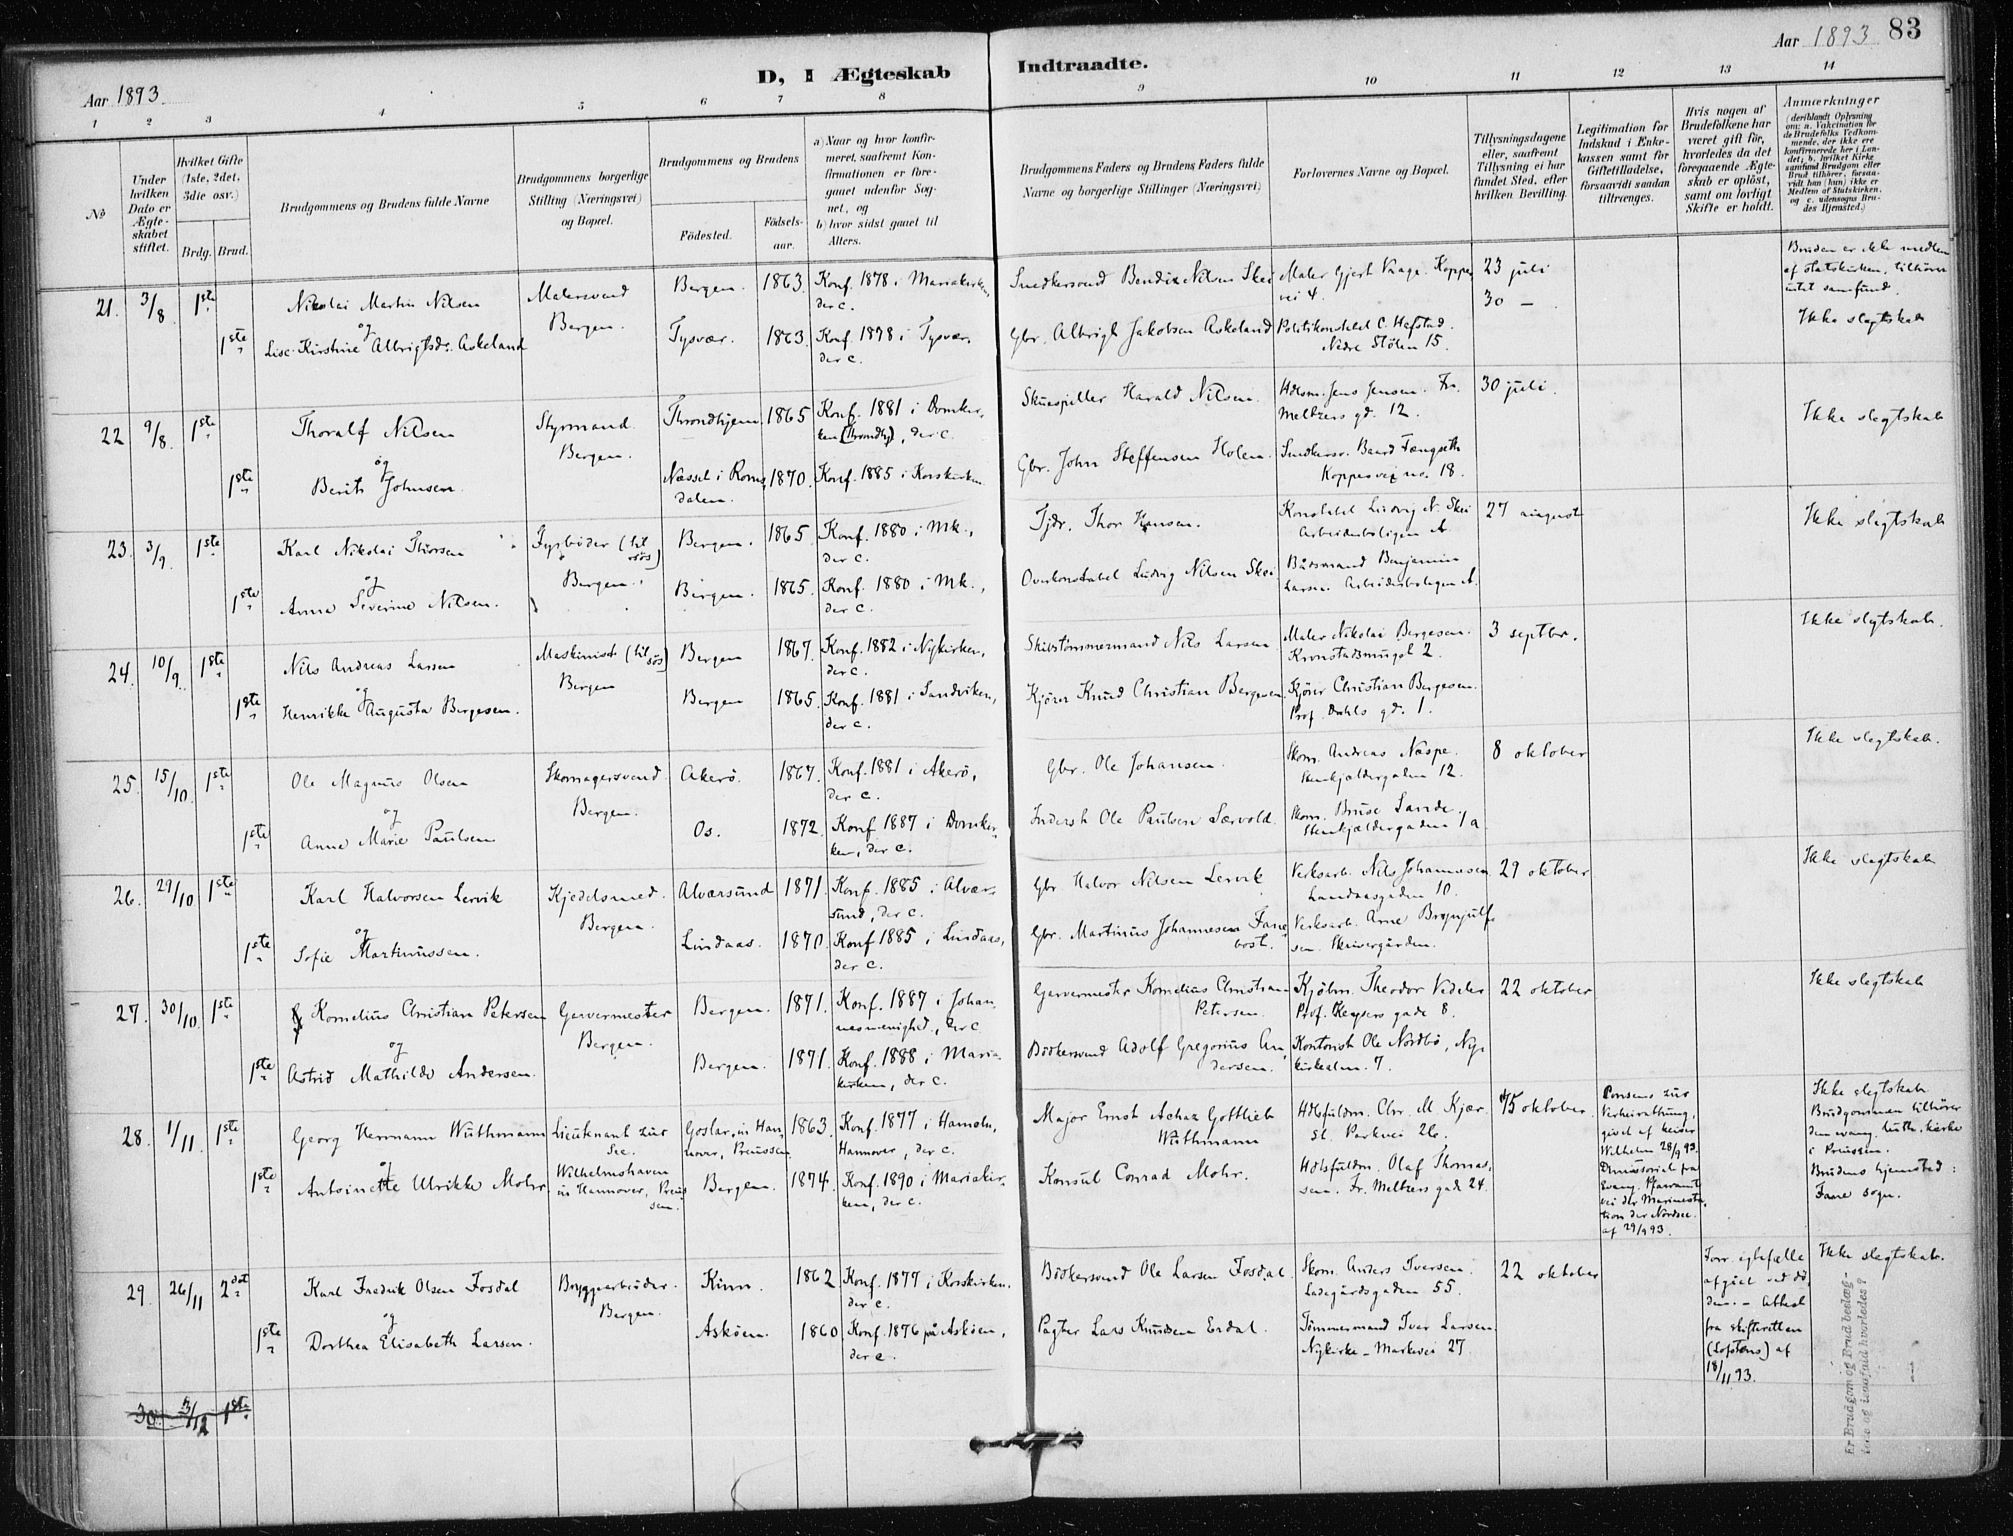 Aar 1893.
D, I Ægteskab Indtraadte.
Aar 1893 83
1 2 3 4 5 6 7 8 9 10 11 12 13 14
No
Under hvilken Dato er Ægteskabet stiftet.
Hvilket Gifte (1ste, 2det, 3die osv.)
Brdg. Brud.
Brudgommens og Brudens fulde Navne
Brudgommens borgerlige Stilling (Næringsvei) og Bopæl.
Brudgommens og Brudens
Fødested. Fødsels-aar.
a) Naar og hvor konfirmeret, saafremt Konfirmationen er foregaaet udenfor Sognet, og
b) hvor sidst gaaet til Alters.
Brudgommens Faders og Brudens Faders fulde Navne og borgerlige Stillinger (Næringsvei)
Forlovernes Navne og Bopæl.
Tillysningsdagene eller, saafremt Tillysning ei har fundet Sted, efter hvilken Bevilling.
Legitimation for Indskud i Enkekassen samt for Giftetilladelse, forsaavidt saadan tiltrænges.
Hvis nogen af Brudefolkene har været gift før, hvorledes da det foregaaende Ægteskab er opløst, samt om lovligt Skifte er holdt.
Anmærkninger (deriblandt Oplysning om: a. Vakcination for de Brudefolks Vedkommende, der ikke ere konfirmerede her i Landet; b. hvilket Kirkesamfund Brudgom eller Brud tilhører, forsaavidt han (hun) ikke er Medlem af Statskirken, og c. udensogns Brudes Hjemsted.)
21. 3/8 1ste Nikolai Martin Nilsen Malersvend Bergen. Bergen. 1863. Konf. 1878 i Mariakirken, der c. Smedkersvend Bendix Nilsen Skei Maler Gjert Vaage. Koppervei 4. 23 juli 30 — Bruden er ikke medlem af statskirken, tilhører intet samfund.
og
1ste Lise Kirstine Albrigtsdr. Askeland Tysvær. 1863. Konf. 1878 i Tysvær, der c. Gbr. Albrigt Jakobsen Askeland Politikonstabel C. Hafstad. Nedre Stölen 15. Ikke slegtskab
22 9/8. 1ste Thoralf Nilsen Styrmand. Bergen. Throndhjem. 1865 Konf. 1881 i Domkirken (Throndhj), der c. Skuespiller Harald Nilsen. Hdlsm. Jens Jensen. Fr. Meltzers gd. 12. 30 juli. Ikke slegtskab
og
1ste Berit Johnsen. Næsset i Romsdalen. 1870. Konf. 1885 i Korskirken Gbr. John Steffensen Holen. Smedkersv. Baard Fængseth Koppervei no. 18.
23. 3/9. 1ste Karl Nikolai Thorsen Fyrbøder (til søs) Bergen. Bergen. 1865. Konf. 1880 i Mk., der c. Tjdr. Thor Hansen. Konstabel Ludvig N. Skei Arbeiderboligen A 27 august Ikke slegtskab
og
1ste Anna Severine Nilsen. Bergen. 1865. Konf. 1880 i Mk., der c. Overkonstabel Ludvig Nilsen Skei Bådsmand Benjamin Larsen. Arbeiderboligen A.
24. 10/9. 1ste Nils Andreas Larsen Maskinist (til søs) Bergen Bergen 1867. Konf. 1882 i Nykirken, der c. Skibstömmermand Nils Larsen Maler Nikolai Bergesen. Kronstadsmuget 2. 3 septbr. Ikke slegtskab.
og
1ste Henrikke Augusta Bergesen. Bergen 1865. Konf. 1881 i Sandviken, der c. Kjörer Knud Christian Bergesen. Kjörer Christian Bergesen. Prof. Dahls gd. 1.
25. 15/10. 1ste Ole Magnus Olsen Skomagersvend Bergen. Akerö. 1867. Konf. 1881 i Akerö, der c. Gbr. Ole Johansen. Skom. Andreas Næspe. Stenkjældergaden 12. 8 oktober Ikke slegtskab.
og
1ste Anna Marie Paulsen Os. 1872. Konf 1887 i Domkirken, der c. Inderst Ole Paulsen Særvold. Skom. Bruse Sande. Stenkjældergaden 1a
26. 29/10 1ste Karl Halvorsen Lervik Kjedelsmed. Bergen. Alværsund 1871. Konf. 1885 i Alværsund, der c. Gbr Halvor Nilsen Lervik Verksarb. Nils Johannesen Landaasgaden 10. 29 oktober Ikke slegtskab
og
1ste Sofie Martinussen. Lindaas. 1870. Konf 1885 i Lindaas, der c. Gbr. Martinus Johannesen Fanebost. Verksarb. Arne Brynjulfsen. Skrivergården.
27. 30/10. 1ste Kornelius Christian Petersen Garvermester Bergen. Bergen. 1871. Konf. 1887 i Johannesmenighed, der c Garvermester Kornelius Christian Petersen. Kjöbm. Theodor Vedeler Prof. Keysers gade 8. 22 oktober Ikke slegtskab
og
1ste Astrid Mathilde Andersen. Bergen. 1871. Konf. 1888 i Mariakirken, der c. Bödkersvend Adolf Gregorius Andersen. Kontorist Ole Nordbö, Nykirkealm. 7.
28. 1/11 1ste Georg Hermann Wuthmann Lieutenant zur See. Goslar, in Hannover, Preussen 1863. Konf. 1877 i Hameln, Hannover, der c. Major Ernst Achaz Gottlieb Wuthmann Hdlsfuldm. Chr. M. Kjær. St. Parkvei 26. 15 oktober. Consens zur Verheirathung, givet af keiser Wilhelm 28/9 93. Dimissorial fra Evang. Pfarramt bei der Marinestation der Nordsee. af 29/9 93. Ikke slegtskab Brudgommen tilhörer den evang. luth. kirke i Preussen. Brudens hjemsted: Fane sogn.
og
1ste Antoinette Ulrikke Mohr Wilhelmshaven in Hannover, Preussen. Bergen. 1874. Konf. 1890 i Mariakirken, der c. Konsul Conrad Mohr. Hdlsfuldm. Olaf Thomassen. Fr. Meltzers gade 24.
29. 26/11 2det Karl Fredrik Olsen Fosdal Bryggearbeider. Bergen. Kinn. 1862 Konf. 1877 i Korskirken. der c. Bödkersvend Ole Larsen Fosdal. Skom. Anders Iversen. Ladegårdsgaden 55. 22 oktober Forr. egtefælle afgået ved döden. — Attest fra skifteretten (Lofotens) af 18/11 93. Ikke slegtskab.
og
1ste Dorthea Elisabeth Larsen. Asköen. 1860. Konf. 1876 på Asköen, der c. Pagter Lars Knudsen Erdal. Tömmermand Iver Larsen. Nykirke-Markevei 27
Er Brudgom og Brud beslægtede og i saafald hvorledes?
30. 3/12 1ste